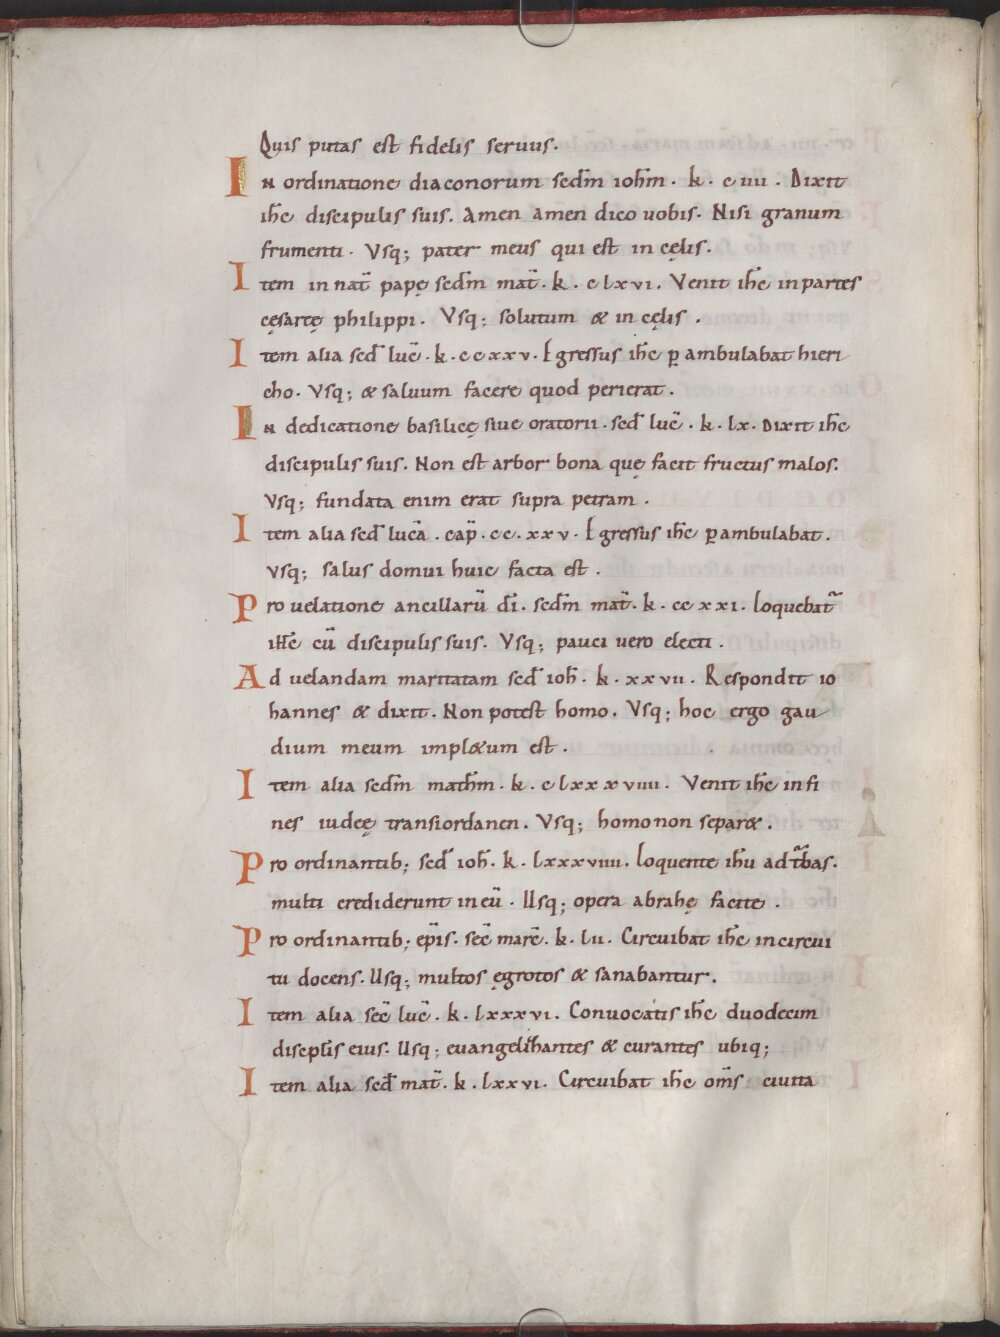 Quis putas est fidelis seruus.
IN ordinatione diaconorum secdm̄ ioh̄m. k. c iiii. Dixit
ih̄c discipulis suis. Amen amen dico uobis. Nisi granum
frumenti. Vsq; pater meus qui est in cęlis.
Item in nat̄ papę secdm̄ mat̄. k. c lxvi. Venit ih̄c in partes
cęsaręę philippi. Vsq; solutum & in cęlis.
Item alia secd̄ luc̄. k. c c xxv. Egressus ih̄c ꝑambulabat hieri
cho. Vsq; & saluum facere quod perierat.
IN dedicatione basilicę siue oratorii. secd̄ luc̄. k. lx. Dixit ih̄c
discipulis suis. Non est arbor bona quę facit fructus malos.
Vsq; fundata enim erat supra petram.
Item alia secd̄ lucā. cap̄. c c. xxv. Egressus ih̄c ꝑambulabat.
Vsq; salus domui huic facta est.
Pro uelatione ancillarū dī. secdm̄ mat̄. k. cc xxi. Loquebat̄
ih̄c cū discipulis suis. Vsq; pauci uero electi.
Ad uelandam maritatam secd̄ ioh̄. k. xxvii. Respondit io
hannes & dixit. Non potest homo. Vsq; hoc ergo gau
dium meum impl&um est.
Item alia secdm̄ math̄m. k. c lxxxviiii. Venit ih̄c in fi
nes iudeę transiordanen. Vsq; homo non separ&.
Pro ordinantib; secd̄ ioh̄. k. lxxxviiii. Loquente ih̄u ad t̄bas.
multi crediderunt in eū. Usq; opera abrahę facite.
Pro ordinantib; ep̄is. sec̄ marc̄. k. lii. Circuibat ih̄c in circui
tu docens. Usq; multos ęgrotos & sanabantur.
Item alia sec̄ luc̄. k. lxxxvi. Conuocatis ih̄c duodecim
discpl̄is eius. Usq; euangelihantes & curantes ubiq;
Item alia secd̄ mat̄. k. lxxvi. Circuibat ih̄c om̄s ciuita